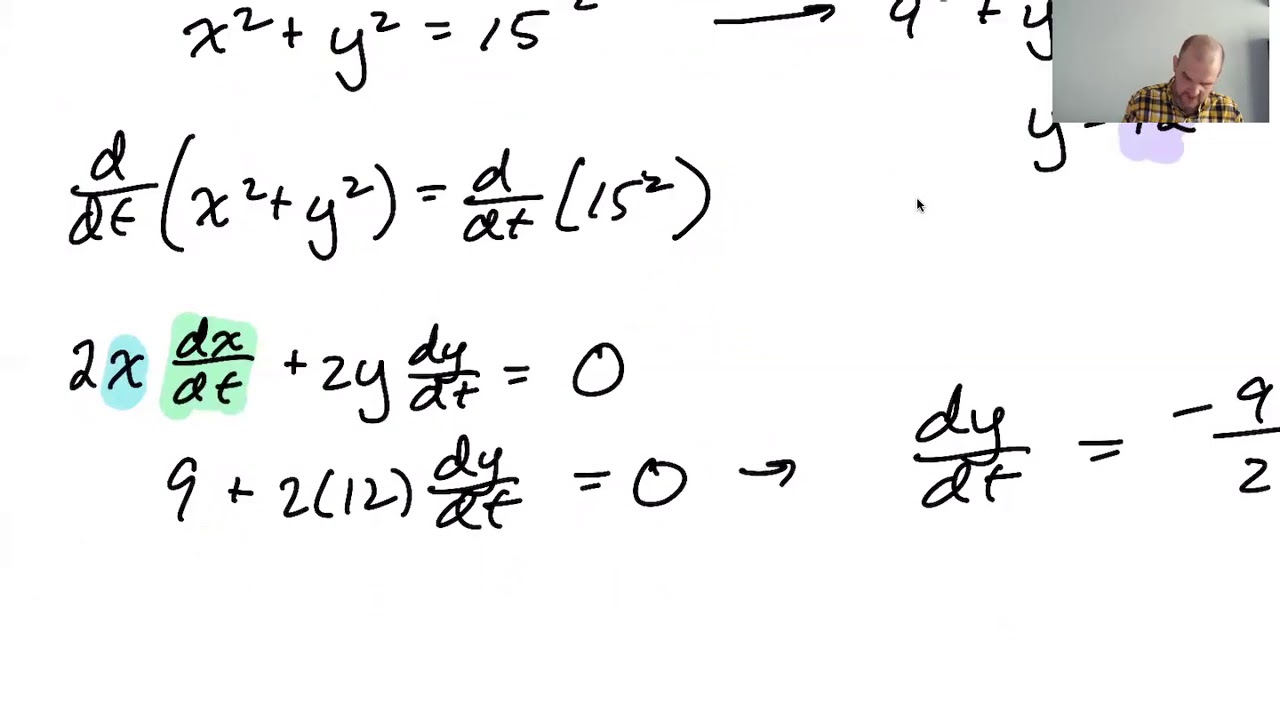 x² + y² = 15² → 9² + y
y = 12
d/dt (x² + y²) = d/dt (15²)
2x dx/dt + 2y dy/dt = 0
9 + 2(12) dy/dt = 0 → dy/dt = -9/2